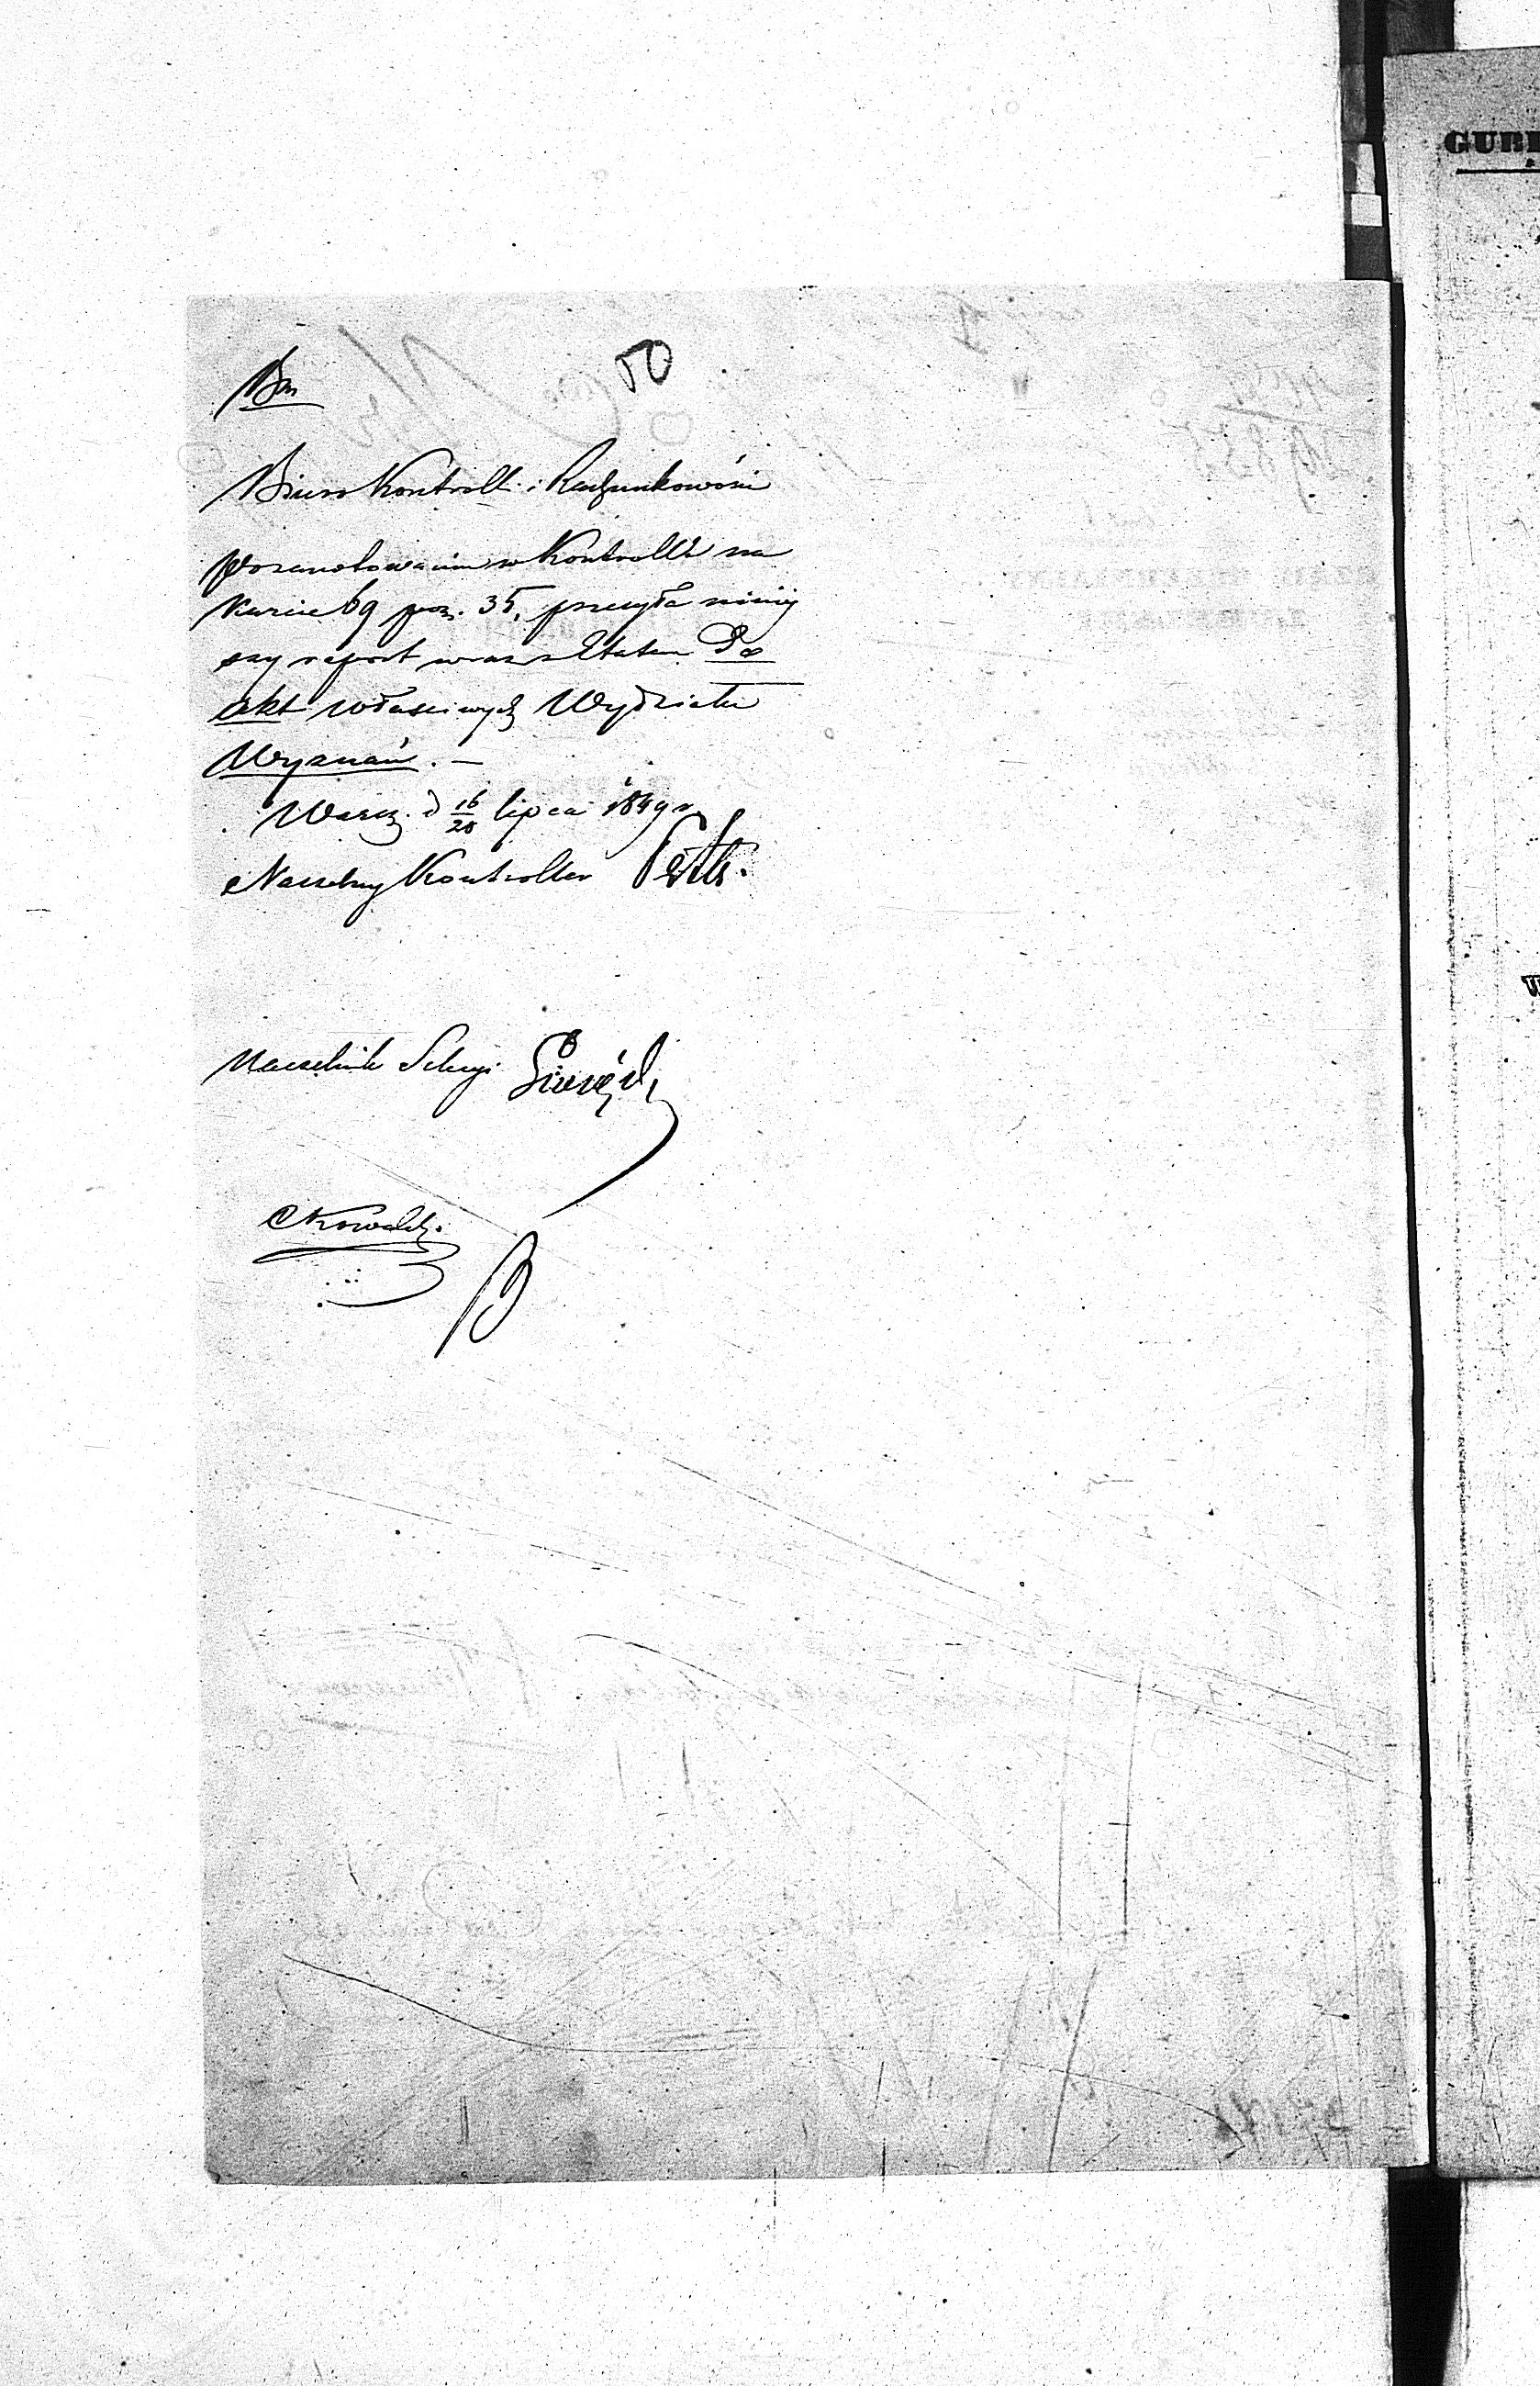 50
Bm
Biuro Kontroll i Rachunkowości
Po zanotowaniu w Kontrolli na
karcie 69 poz. 35, przesyła niniej
szy raport wraz z Etatem Do
akt właściwych Wydziału
Wyznań. —
Warsz. d 16/28 lipca 1849 r.
Naczelny Kontroller
Naczelnik Sekcyi
CKowalski
GUB